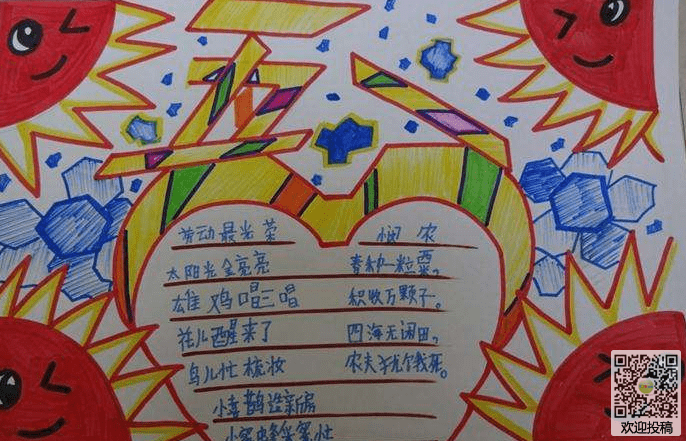 五一
劳动最光荣
太阳光金亮亮
雄鸡唱三唱
花儿醒来了
鸟儿忙梳妆
小喜鹊造新房
小蜜蜂采蜜忙
悯 农
春种一粒粟,
积收万颗子。
四海无闲田,
农夫犹饿死。
欢迎投稿